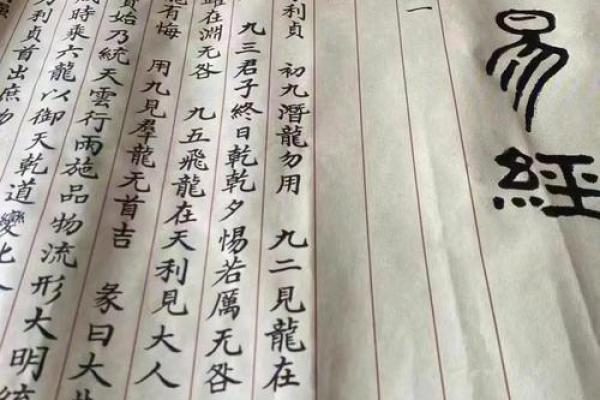 易經
一
利貞　初九潛龍勿用　九二見龍在
九三君子終日乾乾夕惕若厲无咎
躍在淵无咎　九五飛龍在天利見大人
有悔　用九見羣龍无首吉　彖曰大
資始乃統天雲行雨施品物流形大明終
時乘六龍以御天乾道變化
利貞首出庶物